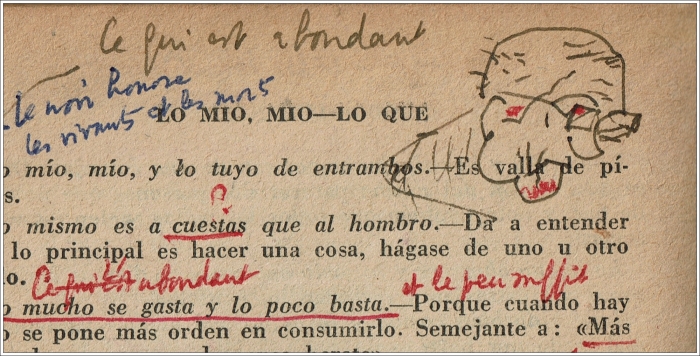 Ce qui est abondant
Le noir honore
les vivants et les morts
LO MIO, MIO—LO QUE
o mío, mío, y lo tuyo de entrambos.—Es valla de pí-
s.
?
o mismo es a cuestas que al hombro.—Da a entender
lo principal es hacer una cosa, hágase de uno u otro
o.
Ce qui est abondant et le peu suffit
o mucho se gasta y lo poco basta.—Porque cuando hay
o se pone más orden en consumirlo. Semejante a: «Más